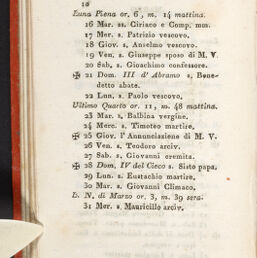 10
Luna Piena or. 6, m. 14 mattina.
16 Mar. ss. Ciriaco e Comp. mm.
17 Mer. s. Patrizio vescovo.
18 Giov. s. Anselmo vescovo.
19 Ven. s. Giuseppe sposo di M. V.
20 Sab. s. Gioachimo confessore.
✠ 21 Dom. III d' Abramo s. Bene-
detto abate.
22 Lun. s. Paolo vescovo.
Ultimo Quarto or. 11, m. 48 mattina.
23 Mar. s. Balbina vergine.
24 Merc. s. Timoteo martire.
✠ 25 Giov. l' Annunciazione di M. V.
26 Ven. s. Teodoro arciv.
27 Sab. s. Giovanni eremita.
✠ 28 Dom. IV del Cieco s. Sisto papa.
29 Lun. s. Eustachio martire.
30 Mar. s. Giovanni Climaco.
L. N. di Marzo or. 3, m. 39 sera.
31 Mer. s. Mauricillo arciv.